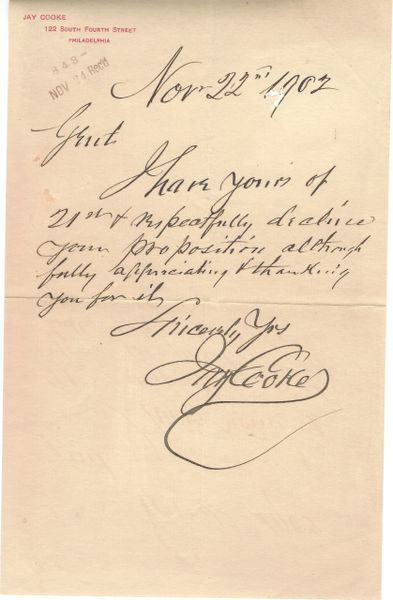 JAY COOKE
122 SOUTH FOURTH STREET
PHILADELPHIA
848-
NOV 24 Rec'd
Nov 22nd 1902
Gent
I have yours of
21st & respectfully decline
your proposition although
fully appreciating & thanking
you for it
Sincerely Yrs
Jay Cooke